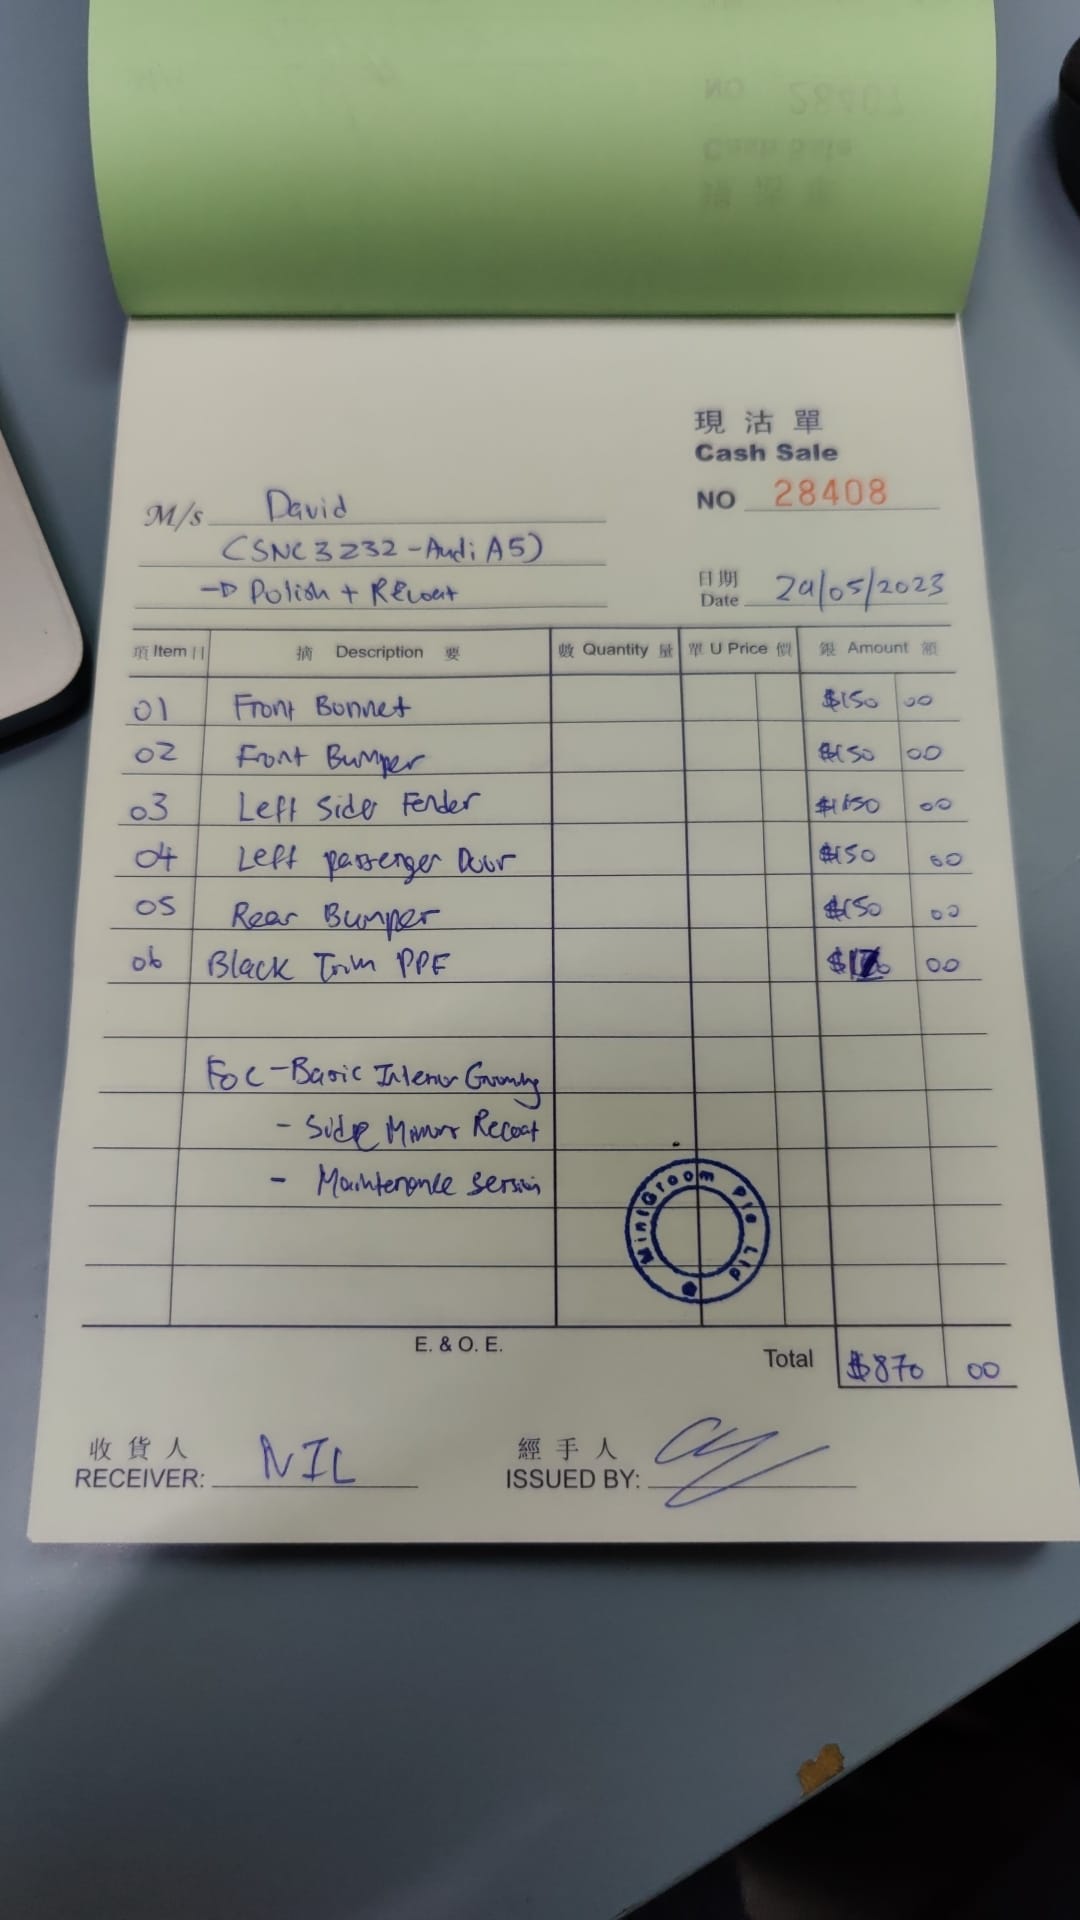 現 沽 單
Cash Sale
NO 28408
M/s David
(SNC3232-Audi A5)
→ Polish + Recoat
日期
Date 29/05/2023
項 Item 目 摘 Description 要 數 Quantity 量 單 U Price 價 銀 Amount 額
01 Front Bonnet $150 00
02 Front Bumper $150 00
03 Left Side Fender $150 00
04 Left passenger Door $150 00
05 Rear Bumper $150 00
06 Black Trim PPF 00
FOC - Basic Interior Grooming
- Side Mirror Recoat
- Maintenance Session
MiniGroom Pte Ltd
E. & O. E.
Total $870 00
收 貨 人
RECEIVER: NIL
經 手 人
ISSUED BY: